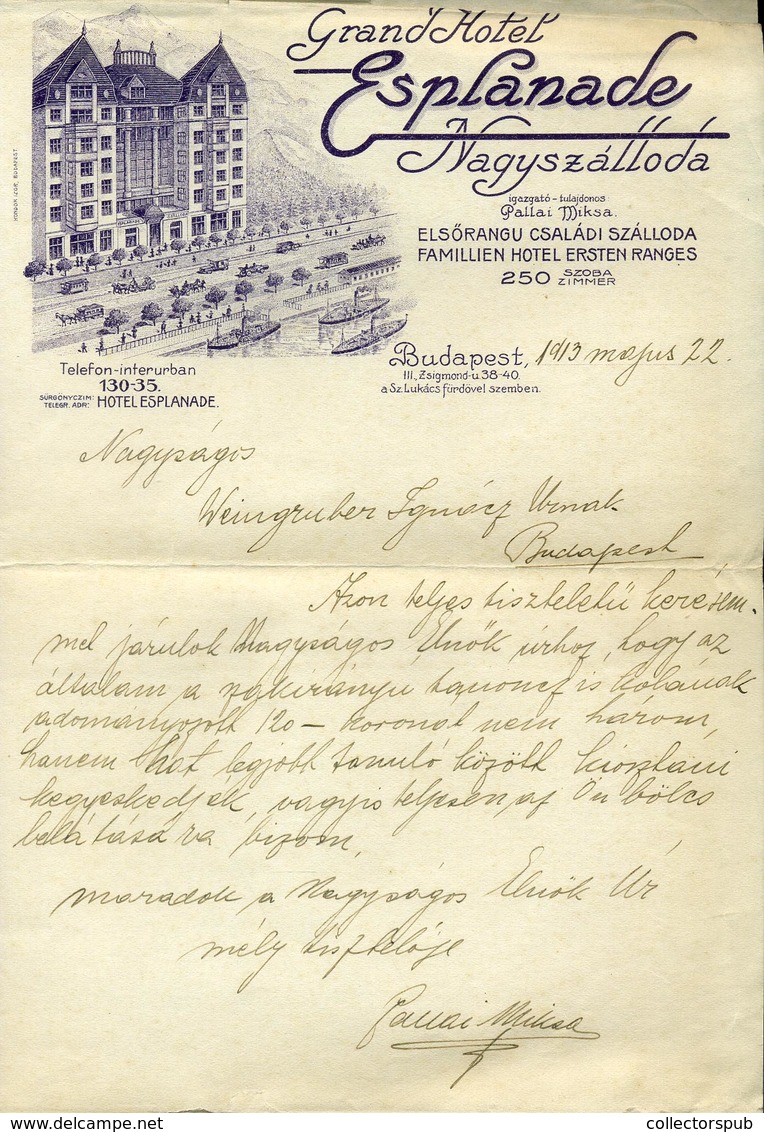 Grand Hotel
Esplanade
Nagyszálloda
igazgató-tulajdonos
Pallai Miksa.
ELSŐRANGU CSALÁDI SZÁLLODA
FAMILLIEN HOTEL ERSTEN RANGES
250 SZOBA
ZIMMER
ESPLANADE SZÁLLODA
Telefon-interurban
130-35.
SÜRGÖNYCZIM:
TELEGR. ADR: HOTEL ESPLANADE.
Budapest, 1913 május 22.
III., Zsigmond-u 38-40.
a Sz. Lukács fürdővel szemben.
Nagyságos
Weingruber Ignácz Urnak
Budapest
Azon teljes tiszteletü kérésem-
mel járulok Nagyságos Elnök úrhoz, hogy az
általam a tanoncz iskolának
adományozott 120 – koronát nem három,
hanem hat legjobb tanuló között kiosztani
kegyeskedjék, vagyis teljesen az Ön bölcs
belátására bizom,
maradok a Nagyságos Elnök Úr
mély tisztelője
Pallai Miksa
collectorspub